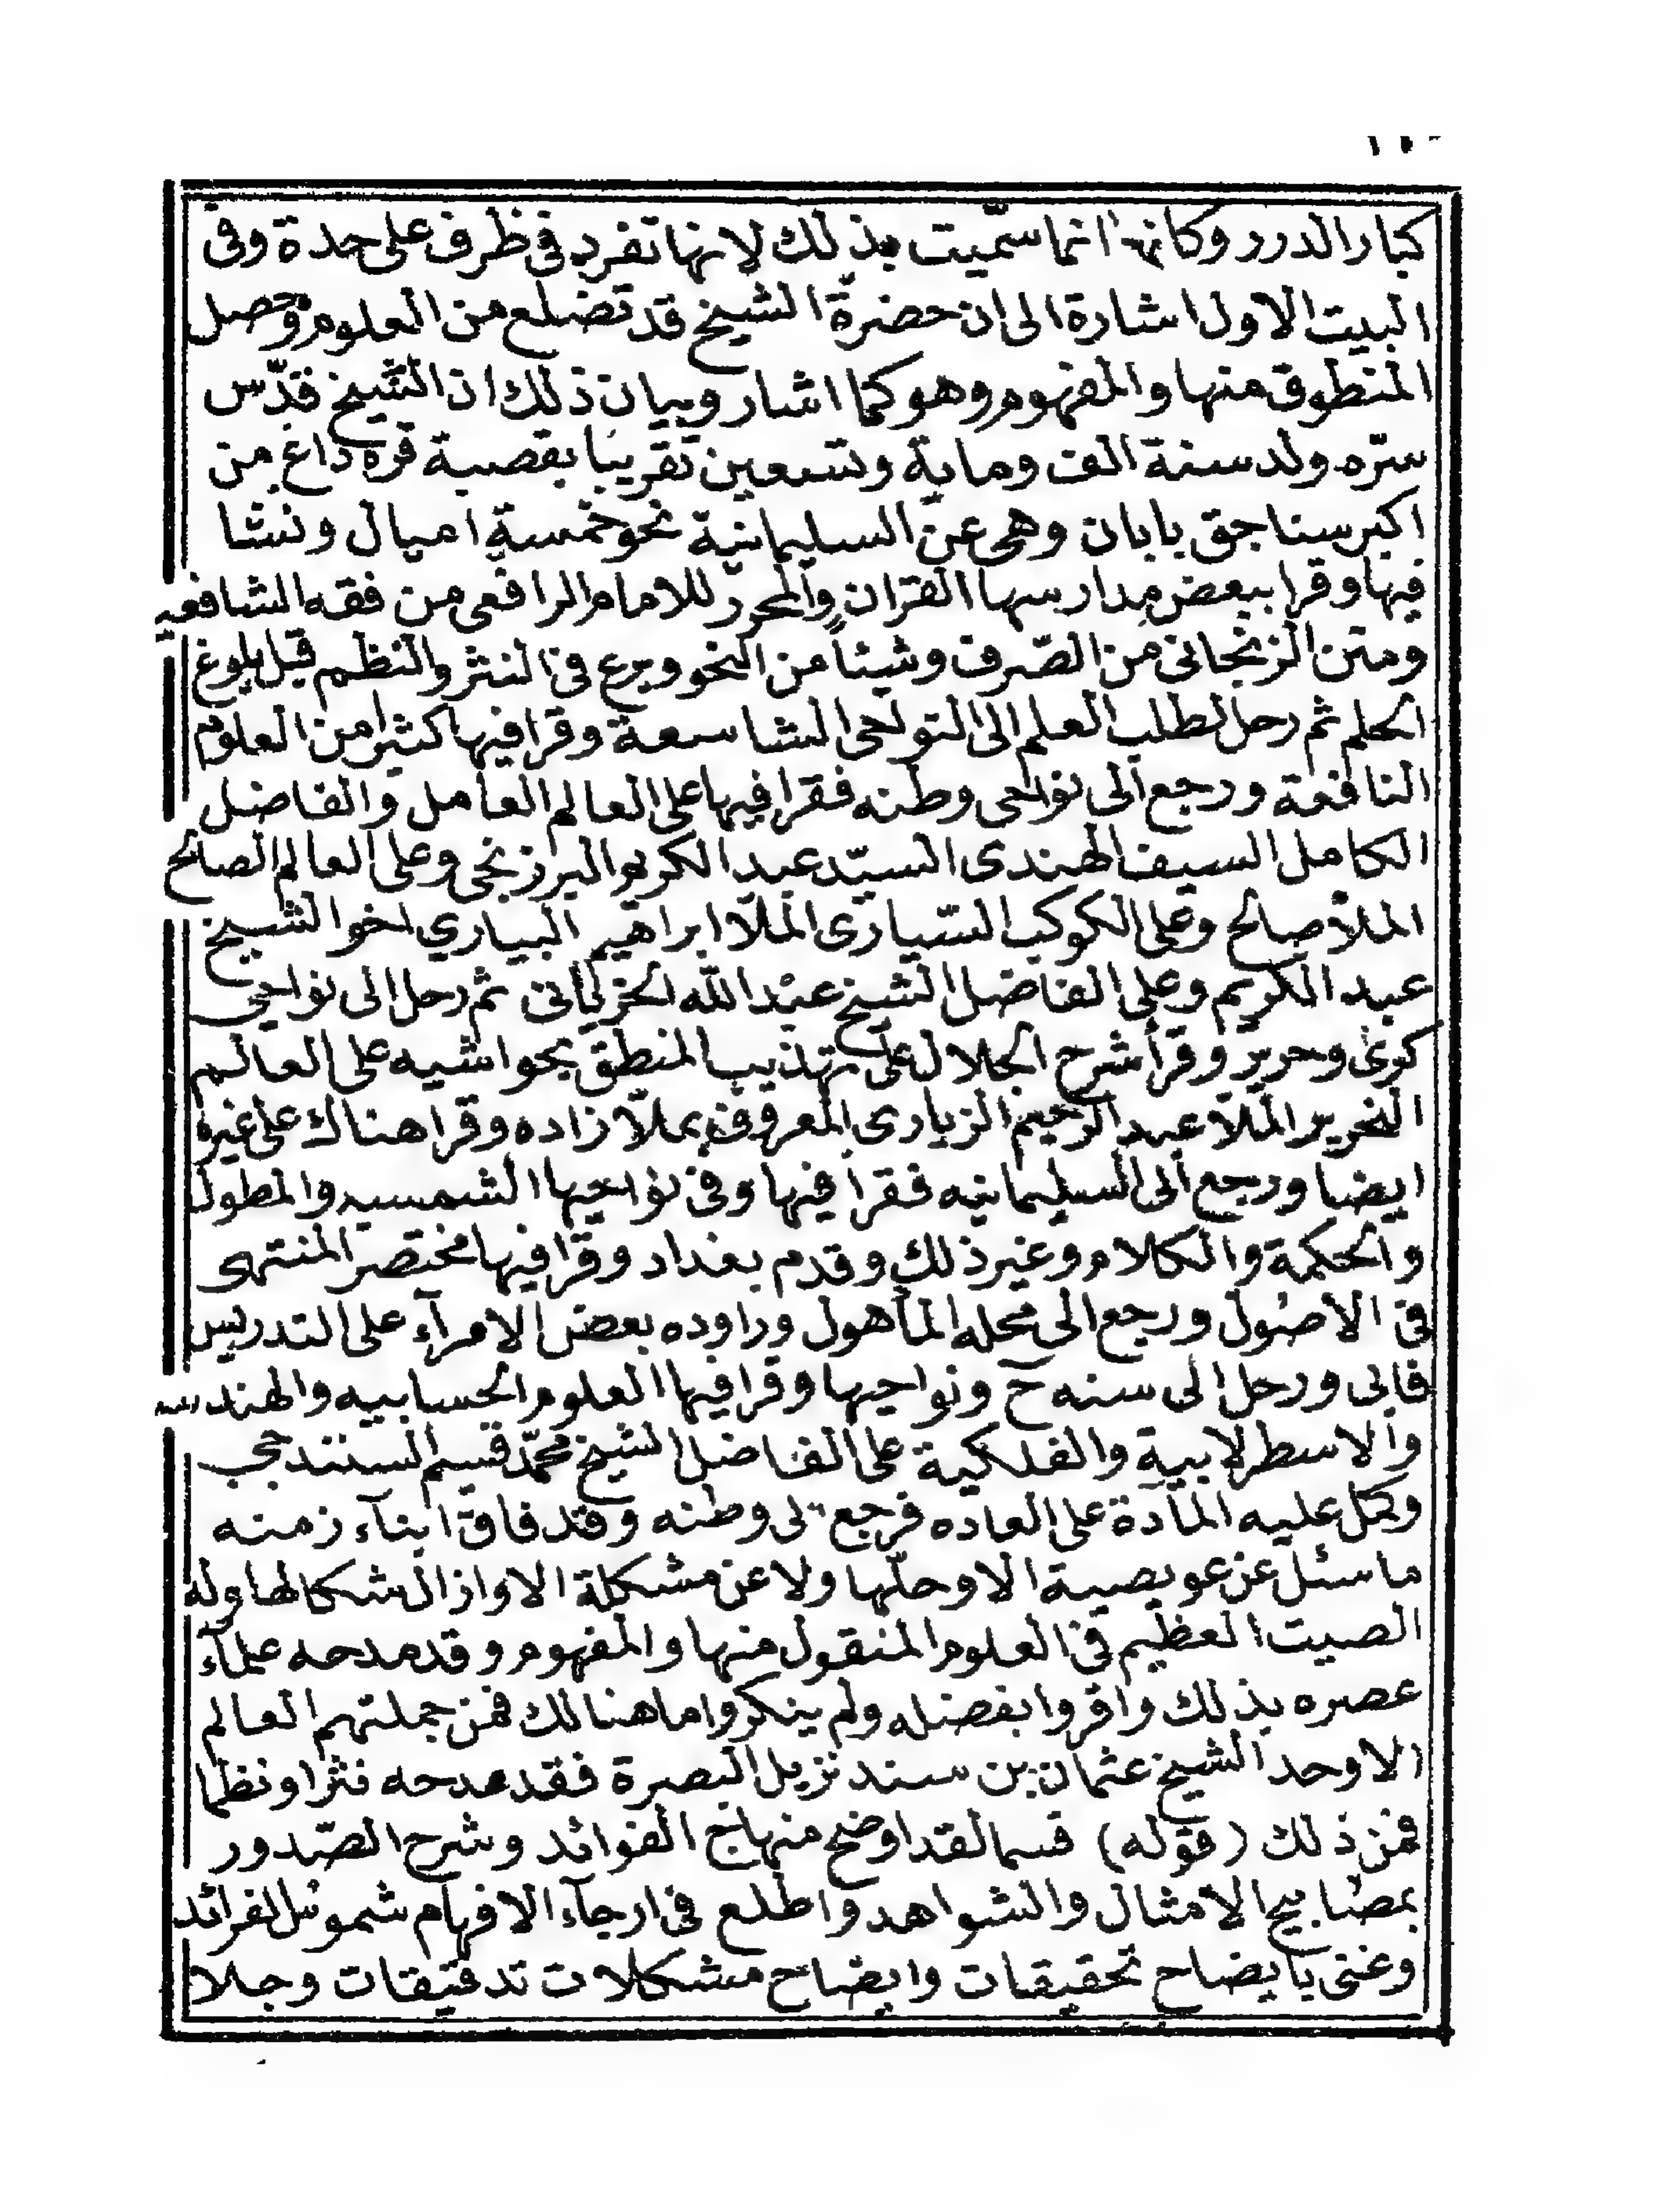 كبار الدرر وكانها انما سمّيت بذلك لانها تفرد فى ظرف على حدة وفى
البيت الاول اشارة الى ان حضرة الشيخ قد تضلع من العلوم وحصل
المنطوق منها والمفهوم وهو كما اشار وبيان ذلك ان الشيخ قدّس
سرّه ولد سنة الف وماية وتسعين تقريبا بقصبة قره داغ من
اكبر سناجق بابان وهى عن السليمانية نحو خمسة اميال ونشا
فيها وقرا ببعض مدارسها القران والمحرر للامام الرافعى من فقه الشافعيه
ومتن الزنجانى من الصّرف وشيئاً من النحو وبرع فى النثر والنظم قبل بلوغ
الحلم ثم رحل لطلب العلم الى النواحى الشاسعة وقرا فيها كثيرا من العلوم
النافعة ورجع الى نواحى وطنه فقرا فيها على العالم العامل والفاضل
الكامل السيف الهندى السيّد عبد الكريم البرزنجى وعلى العالم الصالح
الملا صالح وعلى الكوكب السّيارى الملّا ابراهيم البياري اخو الشيخ
عبد الكريم وعلى الفاضل الشيخ عبد الله الخرپانى ثم رحل الى نواحى
كوى وحرير وقرأ شرح الجلال على تهذيب المنطق بحواشيه على العالم
النحرير الملّا عبد الرحيم الزيارى المعروف بملّا زاده وقرا هناك على غيره
ايضا ورجع الى السليمانيه فقرأ فيها وفى نواحيها الشمسيه والمطول
والحكمة والكلام وغير ذلك وقدم بغداد وقرا فيها مختصر المنتهى
فى الاصول ورجع الى محله المأهول وراوده بعض الامرآء على التدريس
فابى ورحل الى سنه ح ونواحيها وقرا فيها العلوم الحسابيه والهندسه
والاسطرلابية والفلكية على الفاضل الشيخ محمّد قسيم السنندجى
وكمل عليه المادة على العاده فرجع الى وطنه وقد فاق ابنآء زمنه
ما سئل عن عويصة الا وحلّها ولا عن مشكلة الا وازال شكالها وله
الصيت العظيم فى العلوم المنقول منها والمفهوم وقد مدحه علمآء
عصره بذلك واقروا بفضله ولم ينكروا ما هنالك فمن جملتهم العالم
الاوحد الشيخ عثمان بن سند نزيل البصرة فقد مدحه نثرا ونظما
فمن ذلك (قوله) قسما لقد اوضح منهاج الفوائد وشرح الصّدور
بمصابيح الامثال والشواهد واطلع فى ارجآء الافهام شموس الفرائد
وعنى بايضاح تحقيقات وايضاح مشكلات تدقيقات وجلا